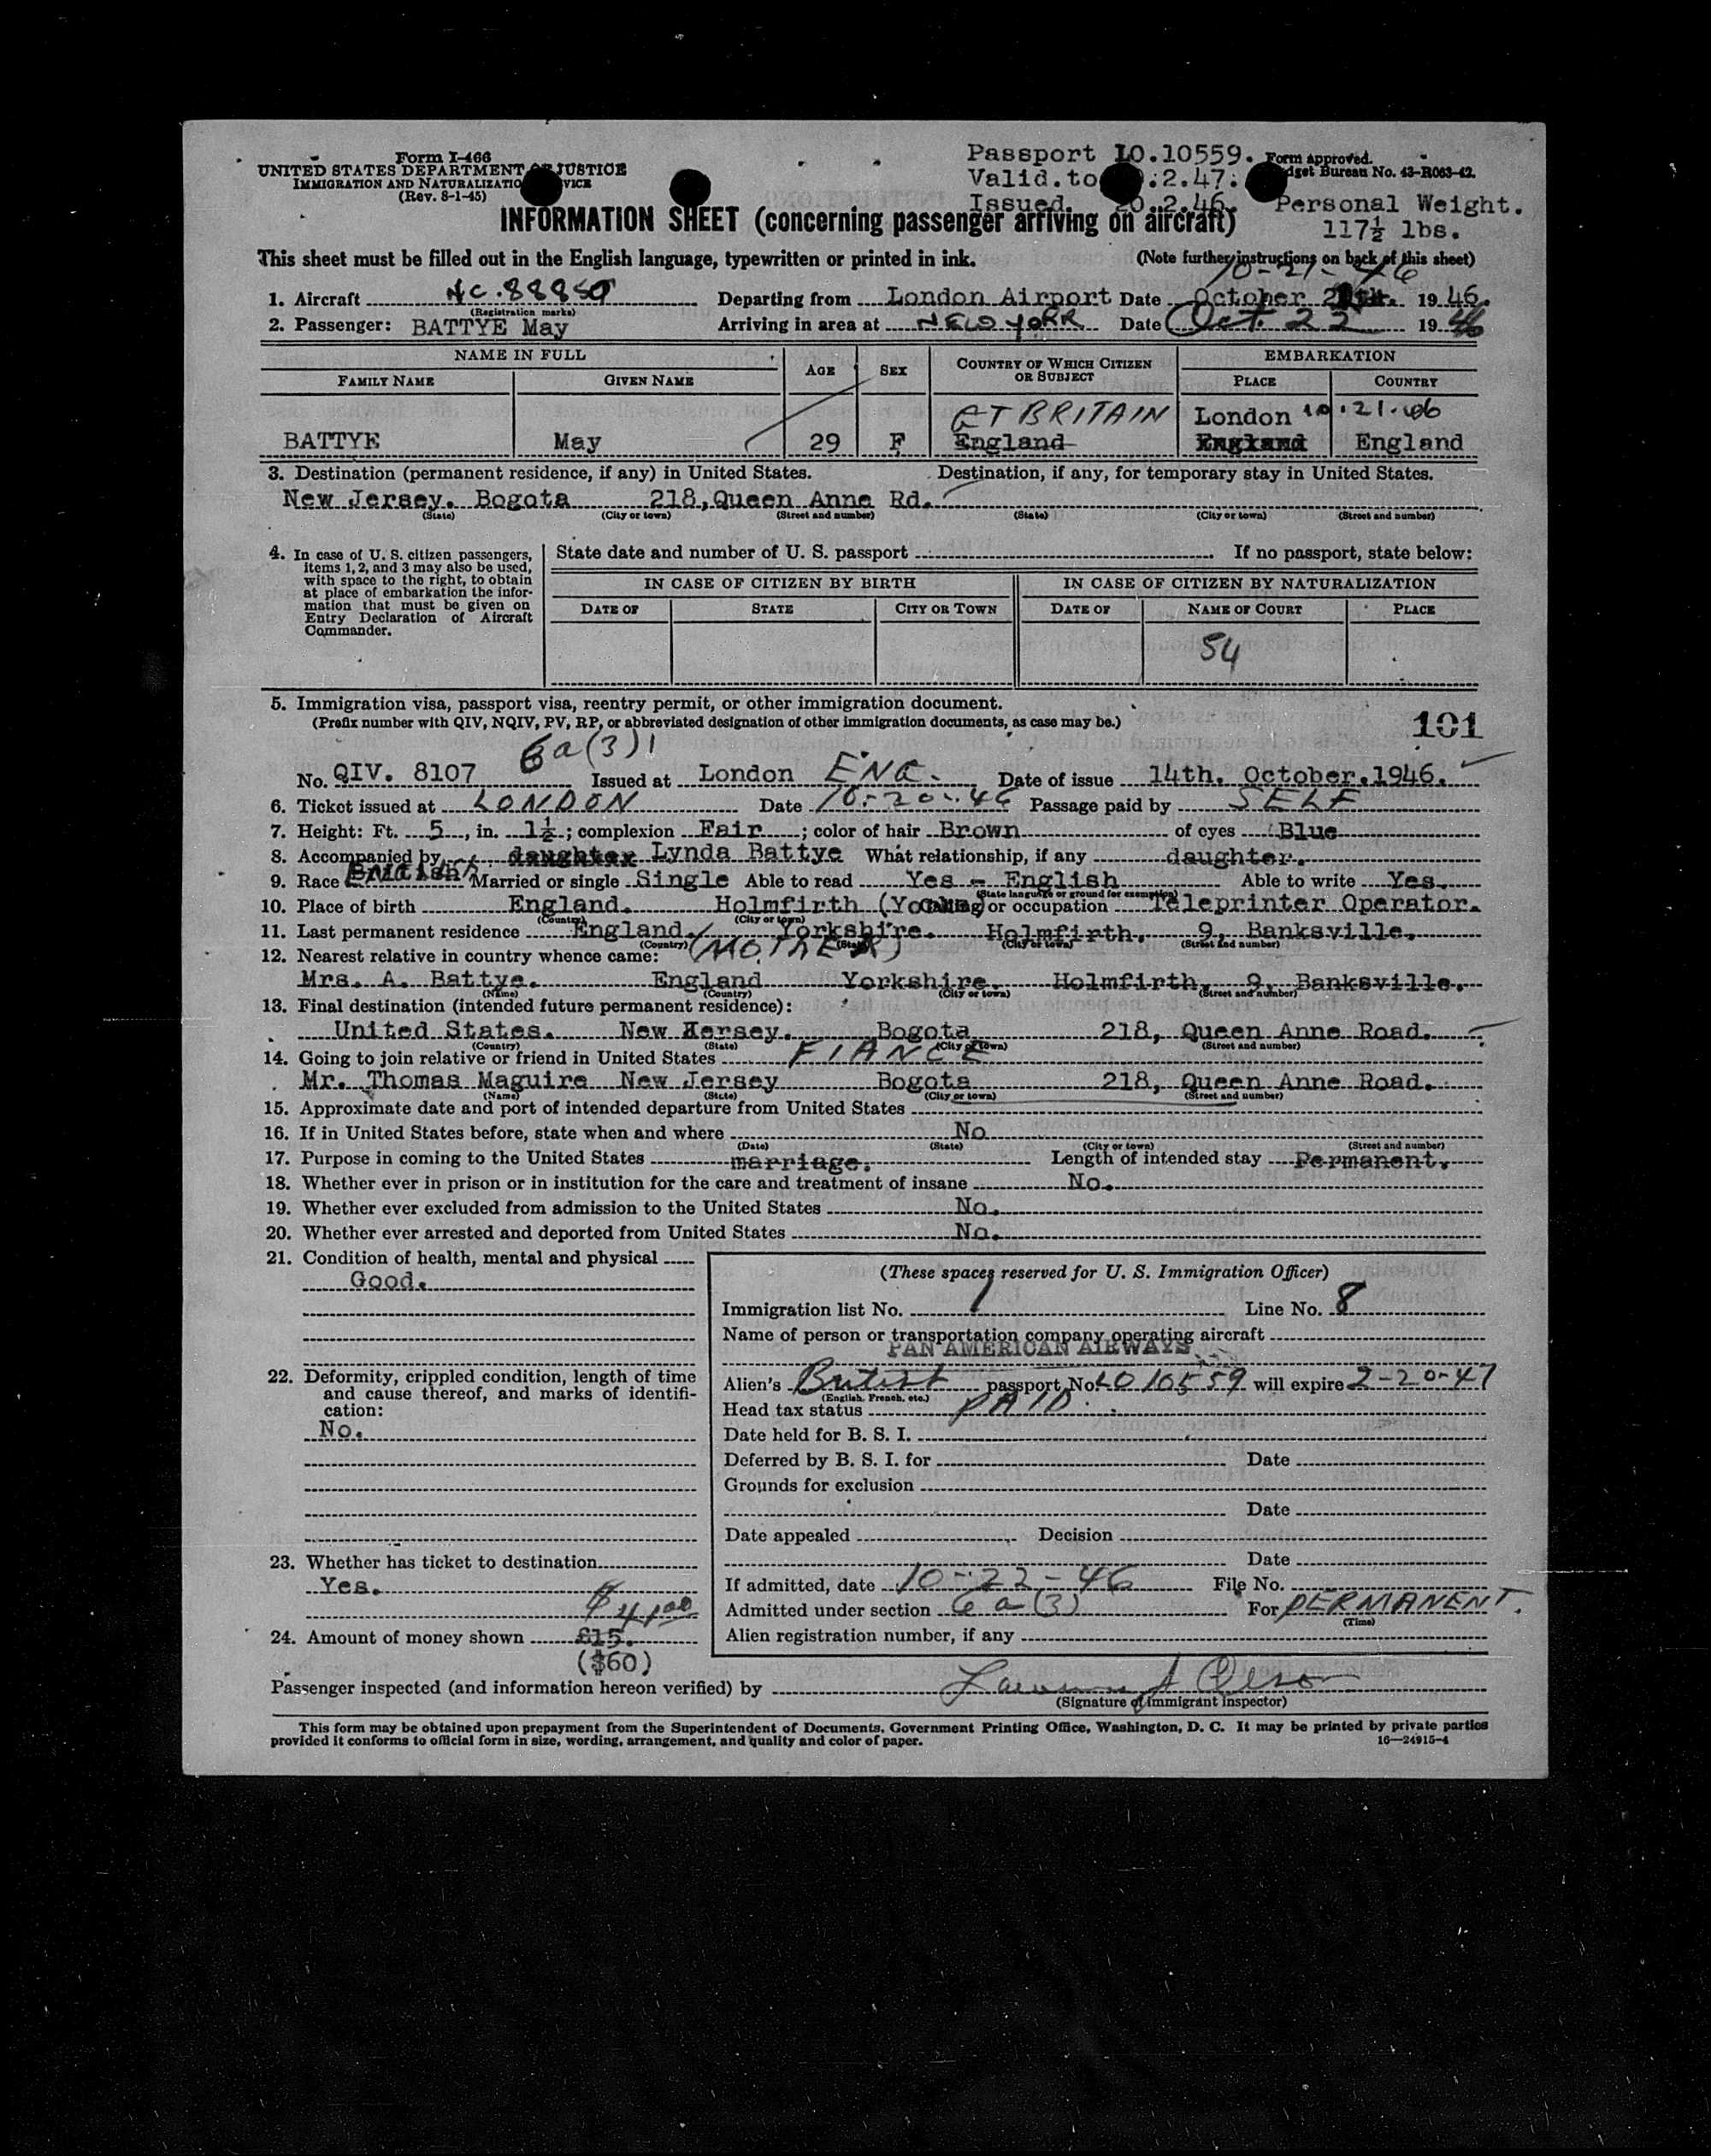 Form I-466
UNITED STATES DEPARTMENT OF JUSTICE
IMMIGRATION AND NATURALIZATION SERVICE
(Rev. 8-1-45)
Passport LO.10559.
Valid.to .2.47.
Issued. 20.2.46.
Form approved.
Budget Bureau No. 43-R063-42.
Personal Weight.
117½ lbs.
INFORMATION SHEET (concerning passenger arriving on aircraft)
This sheet must be filled out in the English language, typewritten or printed in ink. (Note further instructions on back of this sheet)
10-21-46
1. Aircraft NC.88850 Departing from London Airport Date October 1946.
(Registration marks)
2. Passenger: BATTYE May Arriving in area at NEW YORK Date Oct. 22 1946
NAME IN FULL AGE SEX COUNTRY OF WHICH CITIZEN OR SUBJECT EMBARKATION
FAMILY NAME GIVEN NAME PLACE COUNTRY
GT BRITAIN London 10.21.46
BATTYE May 29 F England England England
3. Destination (permanent residence, if any) in United States. Destination, if any, for temporary stay in United States.
New Jersey. Bogota 218, Queen Anne Rd.
(State) (City or town) (Street and number) (State) (City or town) (Street and number)
4. In case of U. S. citizen passengers, items 1, 2, and 3 may also be used, with space to the right, to obtain at place of embarkation the information that must be given on Entry Declaration of Aircraft Commander.
State date and number of U. S. passport If no passport, state below:
IN CASE OF CITIZEN BY BIRTH IN CASE OF CITIZEN BY NATURALIZATION
DATE OF STATE CITY OR TOWN DATE OF NAME OF COURT PLACE
54
5. Immigration visa, passport visa, reentry permit, or other immigration document.
(Prefix number with QIV, NQIV, PV, RP, or abbreviated designation of other immigration documents, as case may be.)
101
6a(3)1
No. QIV. 8107 Issued at London ENG. Date of issue 14th. October.1946.
6. Ticket issued at LONDON Date 10-20-46 Passage paid by SELF
7. Height: Ft. 5, in. 1½; complexion Fair; color of hair Brown of eyes Blue
8. Accompanied by daughter Lynda Battye What relationship, if any daughter.
9. Race British Married or single Single Able to read Yes - English Able to write Yes.
(State language or ground for exemption)
10. Place of birth England. Holmfirth (Yorks) Calling or occupation Teleprinter Operator.
(Country) (City or town)
11. Last permanent residence England. Yorkshire. Holmfirth. 9, Banksville.
(Country) (State) (City or town) (Street and number)
12. Nearest relative in country whence came: (MOTHER)
Mrs. A. Battye. England Yorkshire. Holmfirth, 9, Banksville.
(Name) (Country) (City or town) (Street and number)
13. Final destination (intended future permanent residence):
United States. New Jersey. Bogota 218, Queen Anne Road.
(Country) (State) (City or town) (Street and number)
14. Going to join relative or friend in United States FIANCE
Mr. Thomas Maguire New Jersey Bogota 218, Queen Anne Road.
(Name) (State) (City or town) (Street and number)
15. Approximate date and port of intended departure from United States
16. If in United States before, state when and where No
(Date) (State) (City or town) (Street and number)
17. Purpose in coming to the United States marriage. Length of intended stay Permanent.
18. Whether ever in prison or in institution for the care and treatment of insane No.
19. Whether ever excluded from admission to the United States No.
20. Whether ever arrested and deported from United States No.
21. Condition of health, mental and physical
Good.
22. Deformity, crippled condition, length of time and cause thereof, and marks of identification:
No.
23. Whether has ticket to destination
Yes.
$41.00
24. Amount of money shown £15.
($60)
(These spaces reserved for U. S. Immigration Officer)
Immigration list No. 1 Line No. 8
Name of person or transportation company operating aircraft
PAN AMERICAN AIRWAYS
Alien's British passport No. LO10559 will expire 2-20-47
(English, French, etc.)
Head tax status PAID.
Date held for B. S. I.
Deferred by B. S. I. for Date
Grounds for exclusion
Date
Date appealed Decision
Date
If admitted, date 10-22-46 File No.
Admitted under section 6a(3) For PERMANENT.
(Time)
Alien registration number, if any
Passenger inspected (and information hereon verified) by
(Signature of immigrant inspector)
This form may be obtained upon prepayment from the Superintendent of Documents, Government Printing Office, Washington, D. C. It may be printed by private parties
provided it conforms to official form in size, wording, arrangement, and quality and color of paper. 16—24915-4